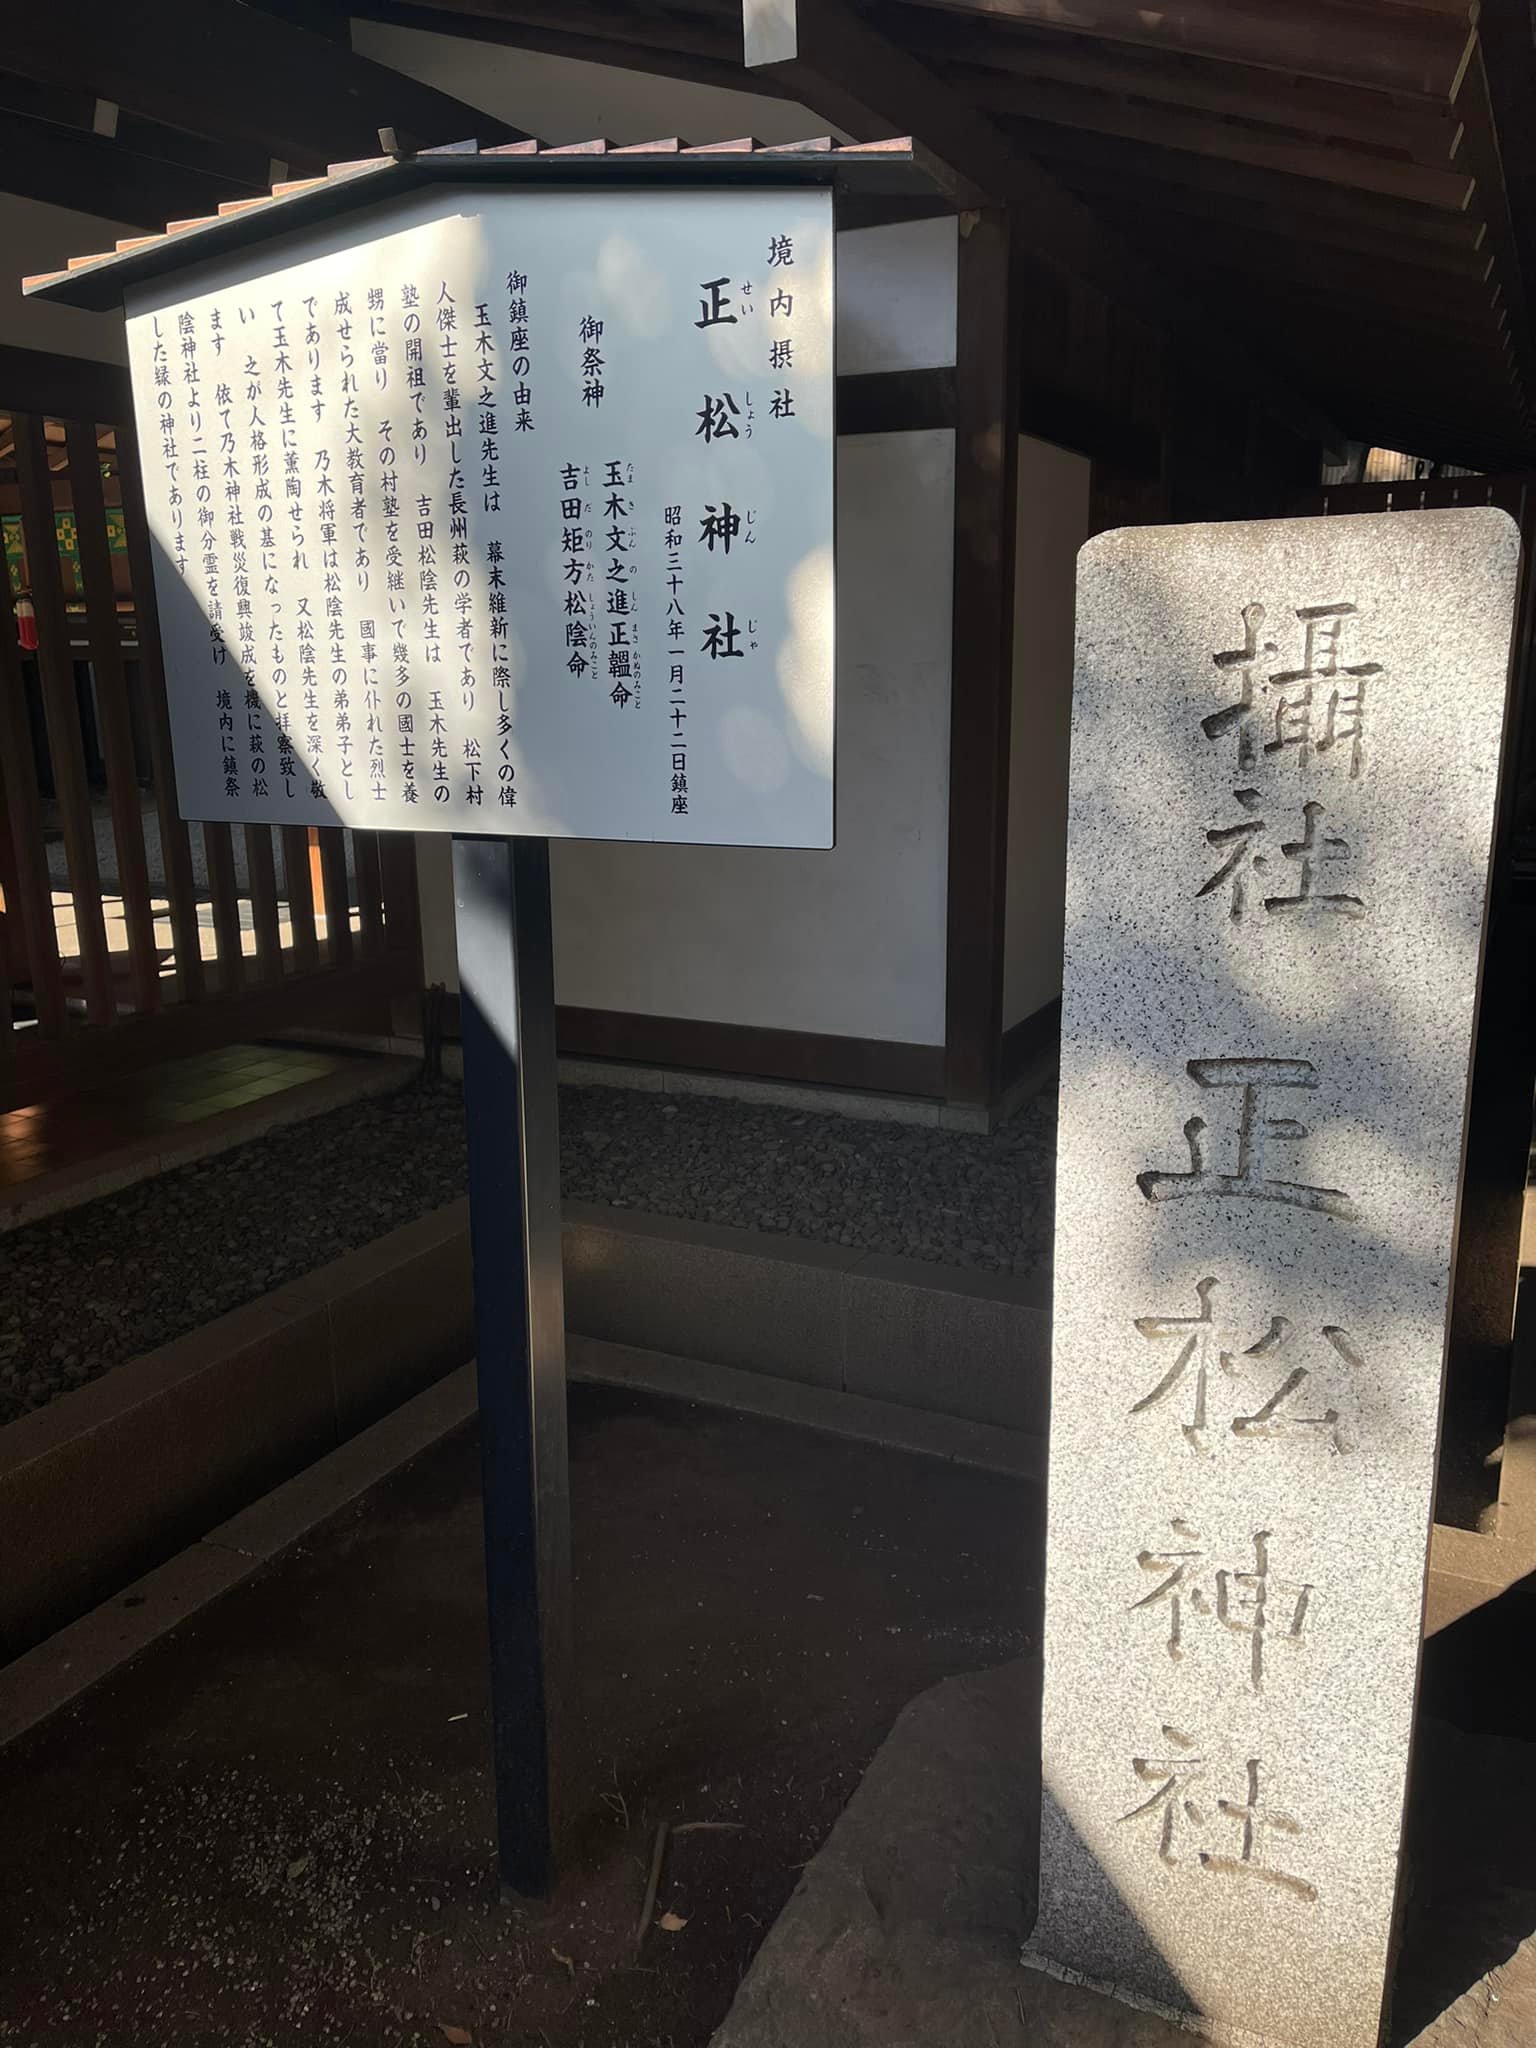 境内摂社
正松神社
せいしょうじんじゃ
昭和三十八年一月二十二日鎮座
御祭神
玉木文之進正韞命
たまきぶんのしんまさかぬのみこと
吉田矩方松陰命
よしだのりかたしょういんのみこと
御鎮座の由来
玉木文之進先生は 幕末維新に際し多くの偉
人傑士を輩出した長州萩の学者であり 松下村
塾の開祖であり 吉田松陰先生は 玉木先生の
甥に當り その村塾を受継いで幾多の國士を養
成せられた大教育者であり 國事に仆れた烈士
であります 乃木将軍は松陰先生の弟弟子とし
て玉木先生に薫陶せられ 又松陰先生を深く敬
い 之が人格形成の基になったものと拝察致し
ます 依て乃木神社戦災復興竣成を機に萩の松
陰神社より二柱の御分霊を請受け 境内に鎮祭
した縁の神社であります
攝社 正松神社